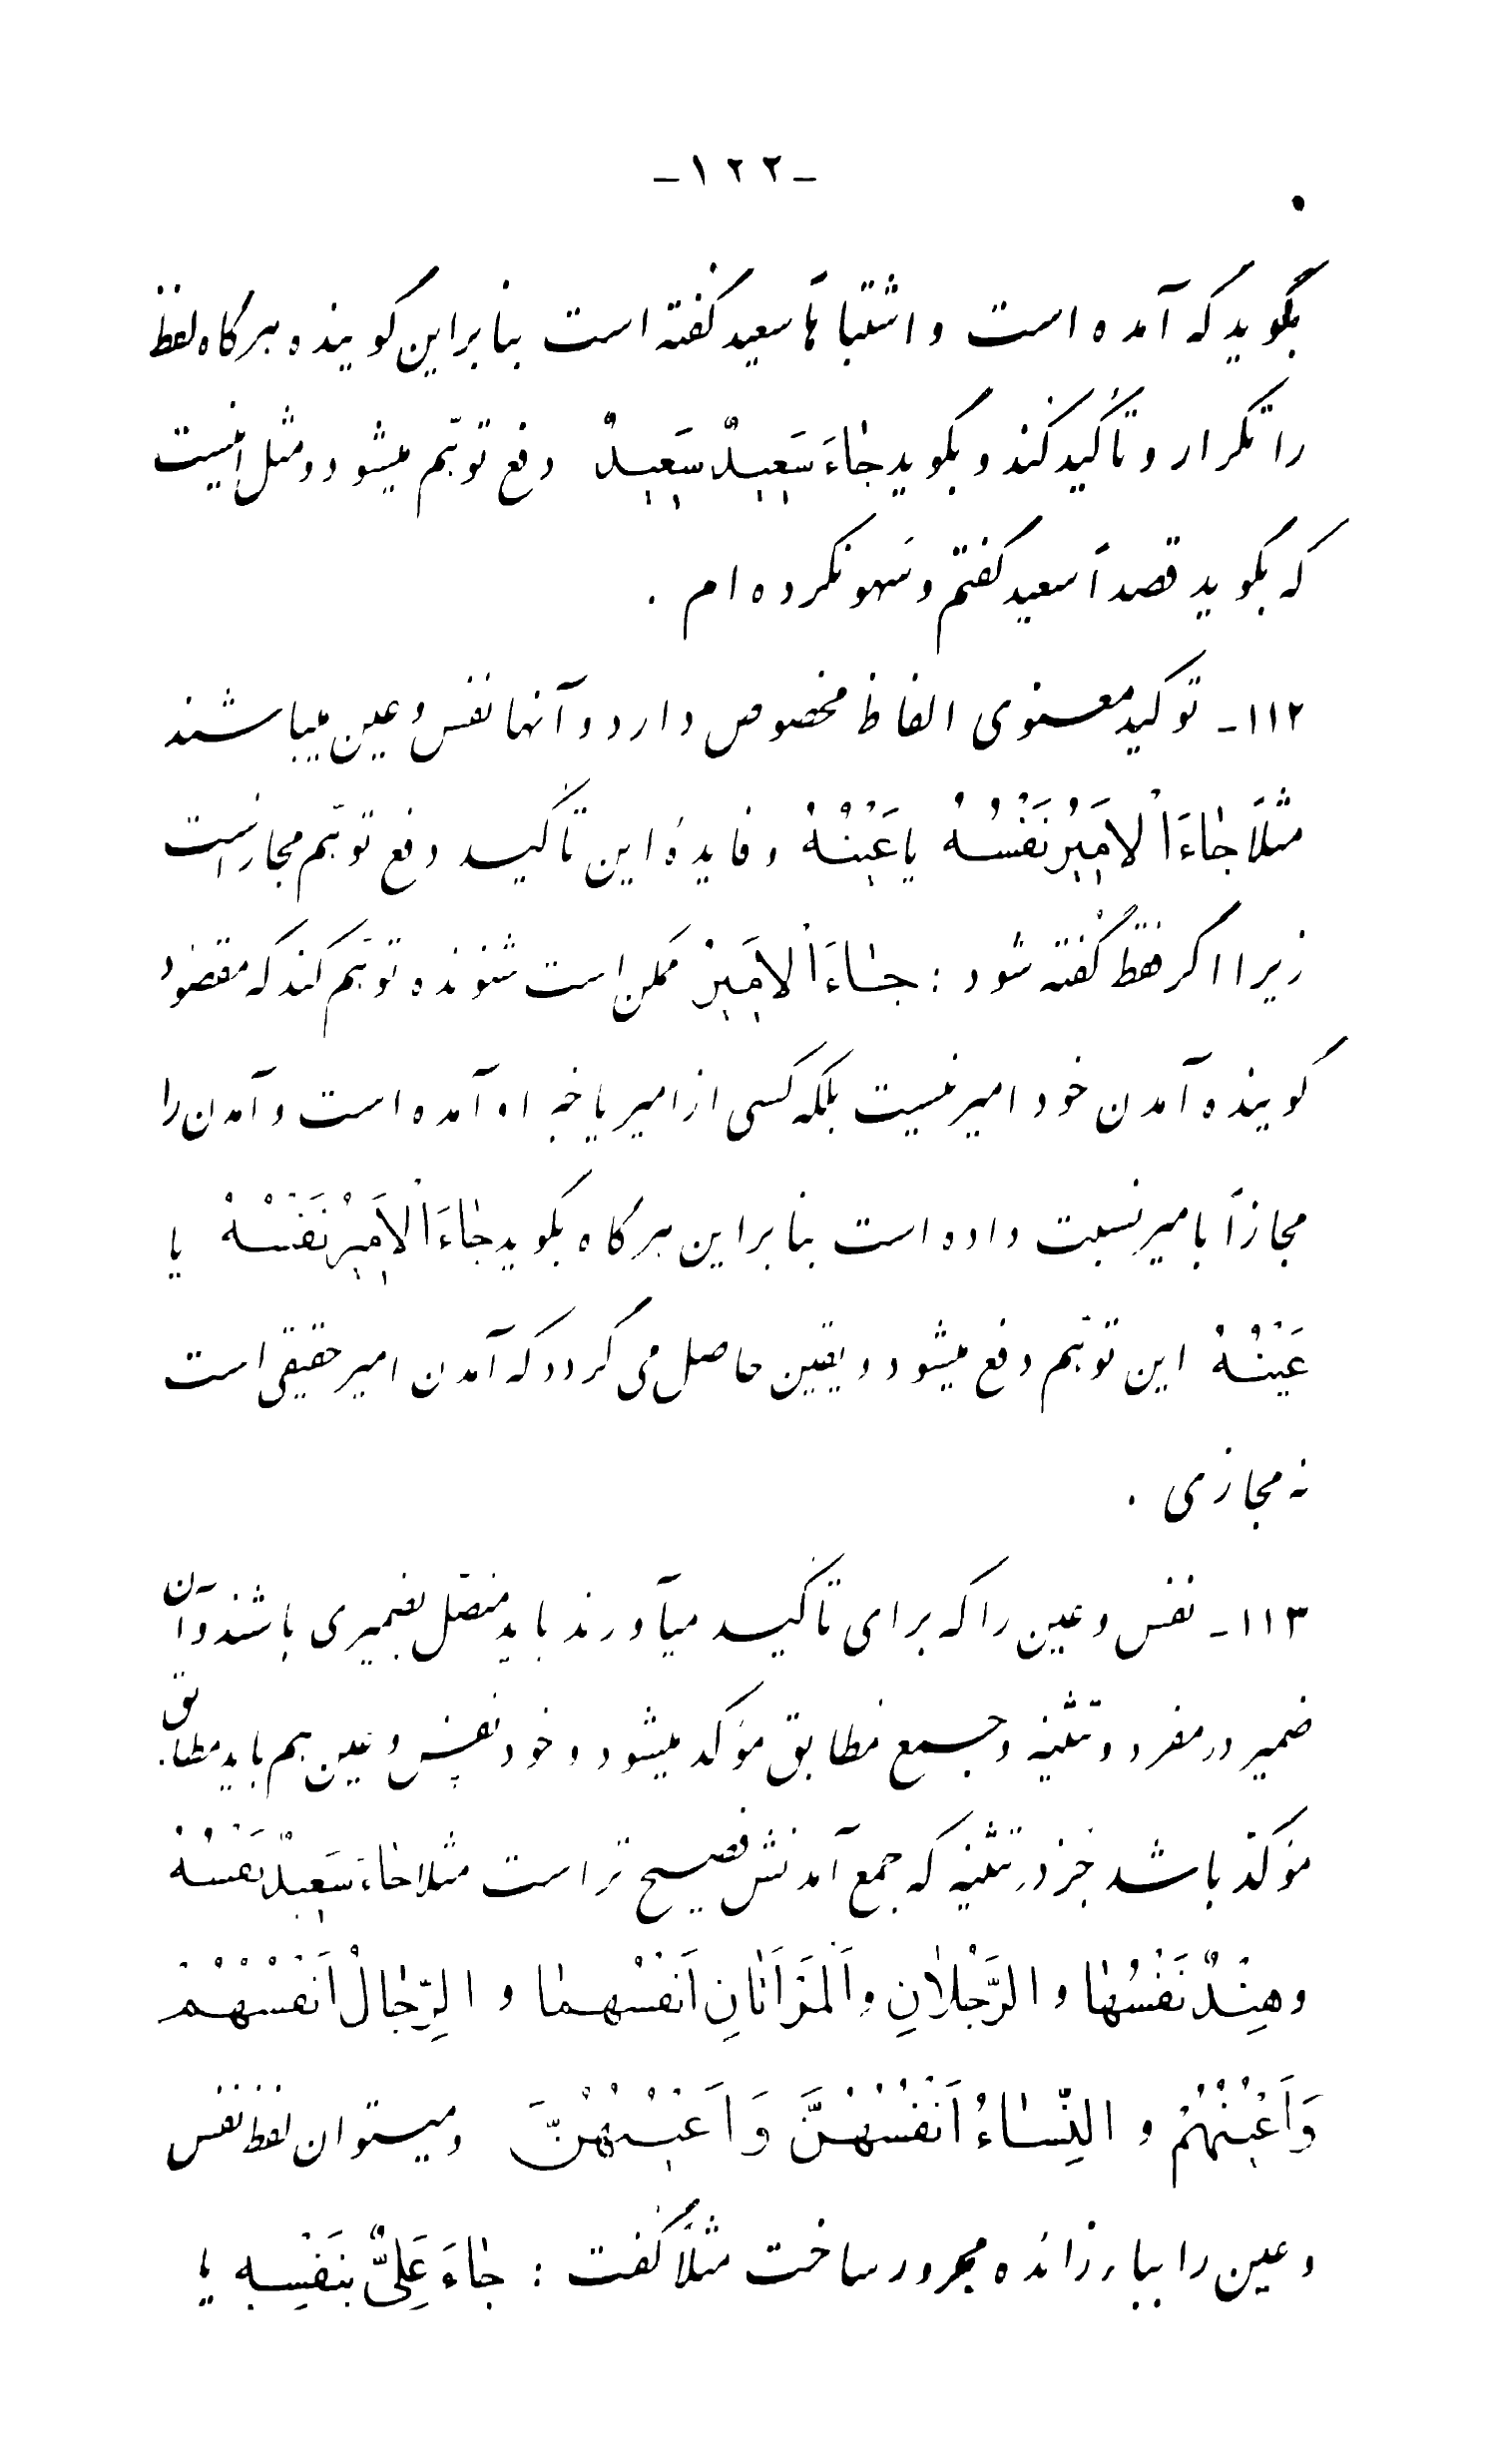 -۱۲۲-
بگوید که آمده است و اشتباهاً سعید گفته است بنابراین گوینده هرگاه لفظ
را تکرار و تأکید کند و بگوید جٰاءَ سَعیدٌ سَعیدٌ دفع توهّم میشود و مثل اینست
که بگوید قصداً سعید گفتم و سَهو نکرده ام .
۱۱۲- توکید معنوی الفاظ مخصوص دارد و آنها نفس و عین میباشند
مثلاً جٰاءَ اْلاَمیرُ نَفْسُهُ یا عَیْنُهُ و فایدهٔ این تأکید دفع توهّم مجاز است
زیرا اگر فقط گفته شود : جٰاءَ اْلاَمیرُ ممکن است شنونده توهّم کند که مقصود
گوینده آمدن خود امیر نیست بلکه کسی از امیر یا خبر او آمده است و آمدن را
مجازاً بامیر نسبت داده است بنابراین هرگاه بگوید جٰاءَ اْلاَمیرُ نَفْسُهُ یا
عَیْنُهُ این توهّم دفع میشود و یقین حاصل می گردد که آمدن امیر حقیقی است
نه مجازی .
۱۱۳- نفس و عین را که برای تأکید میآورند باید متصل بضمیری باشند و آن
ضمیر در مفرد و تثنیه و جمع مطابق مؤکد میشود و خود نفس و عین هم باید مطابق
مؤکد باشد جز در تثنیه که جمع آمدنش فصیح تر است مثلا جٰاءَ سَعیدٌ نَفْسُهُ
و هِنْدٌ نَفْسُهٰا و الرَّجُلاٰنِ و اَلْمَرْاَتٰانِ اَنْفُسُهمٰا و الرِّجٰالُ اَنْفُسُهُمْ
وَ اَعْیُنُهُمْ و النِّسٰاءُ اَنْفُسُهُنَّ وَ اَعْیُنُهُنَّ و میتوان لفظ نفس
و عین را بباء زائده مجرور ساخت مثلاً گفت : جٰاءَ عَلِیٌّ بِنَفْسِهِ یا